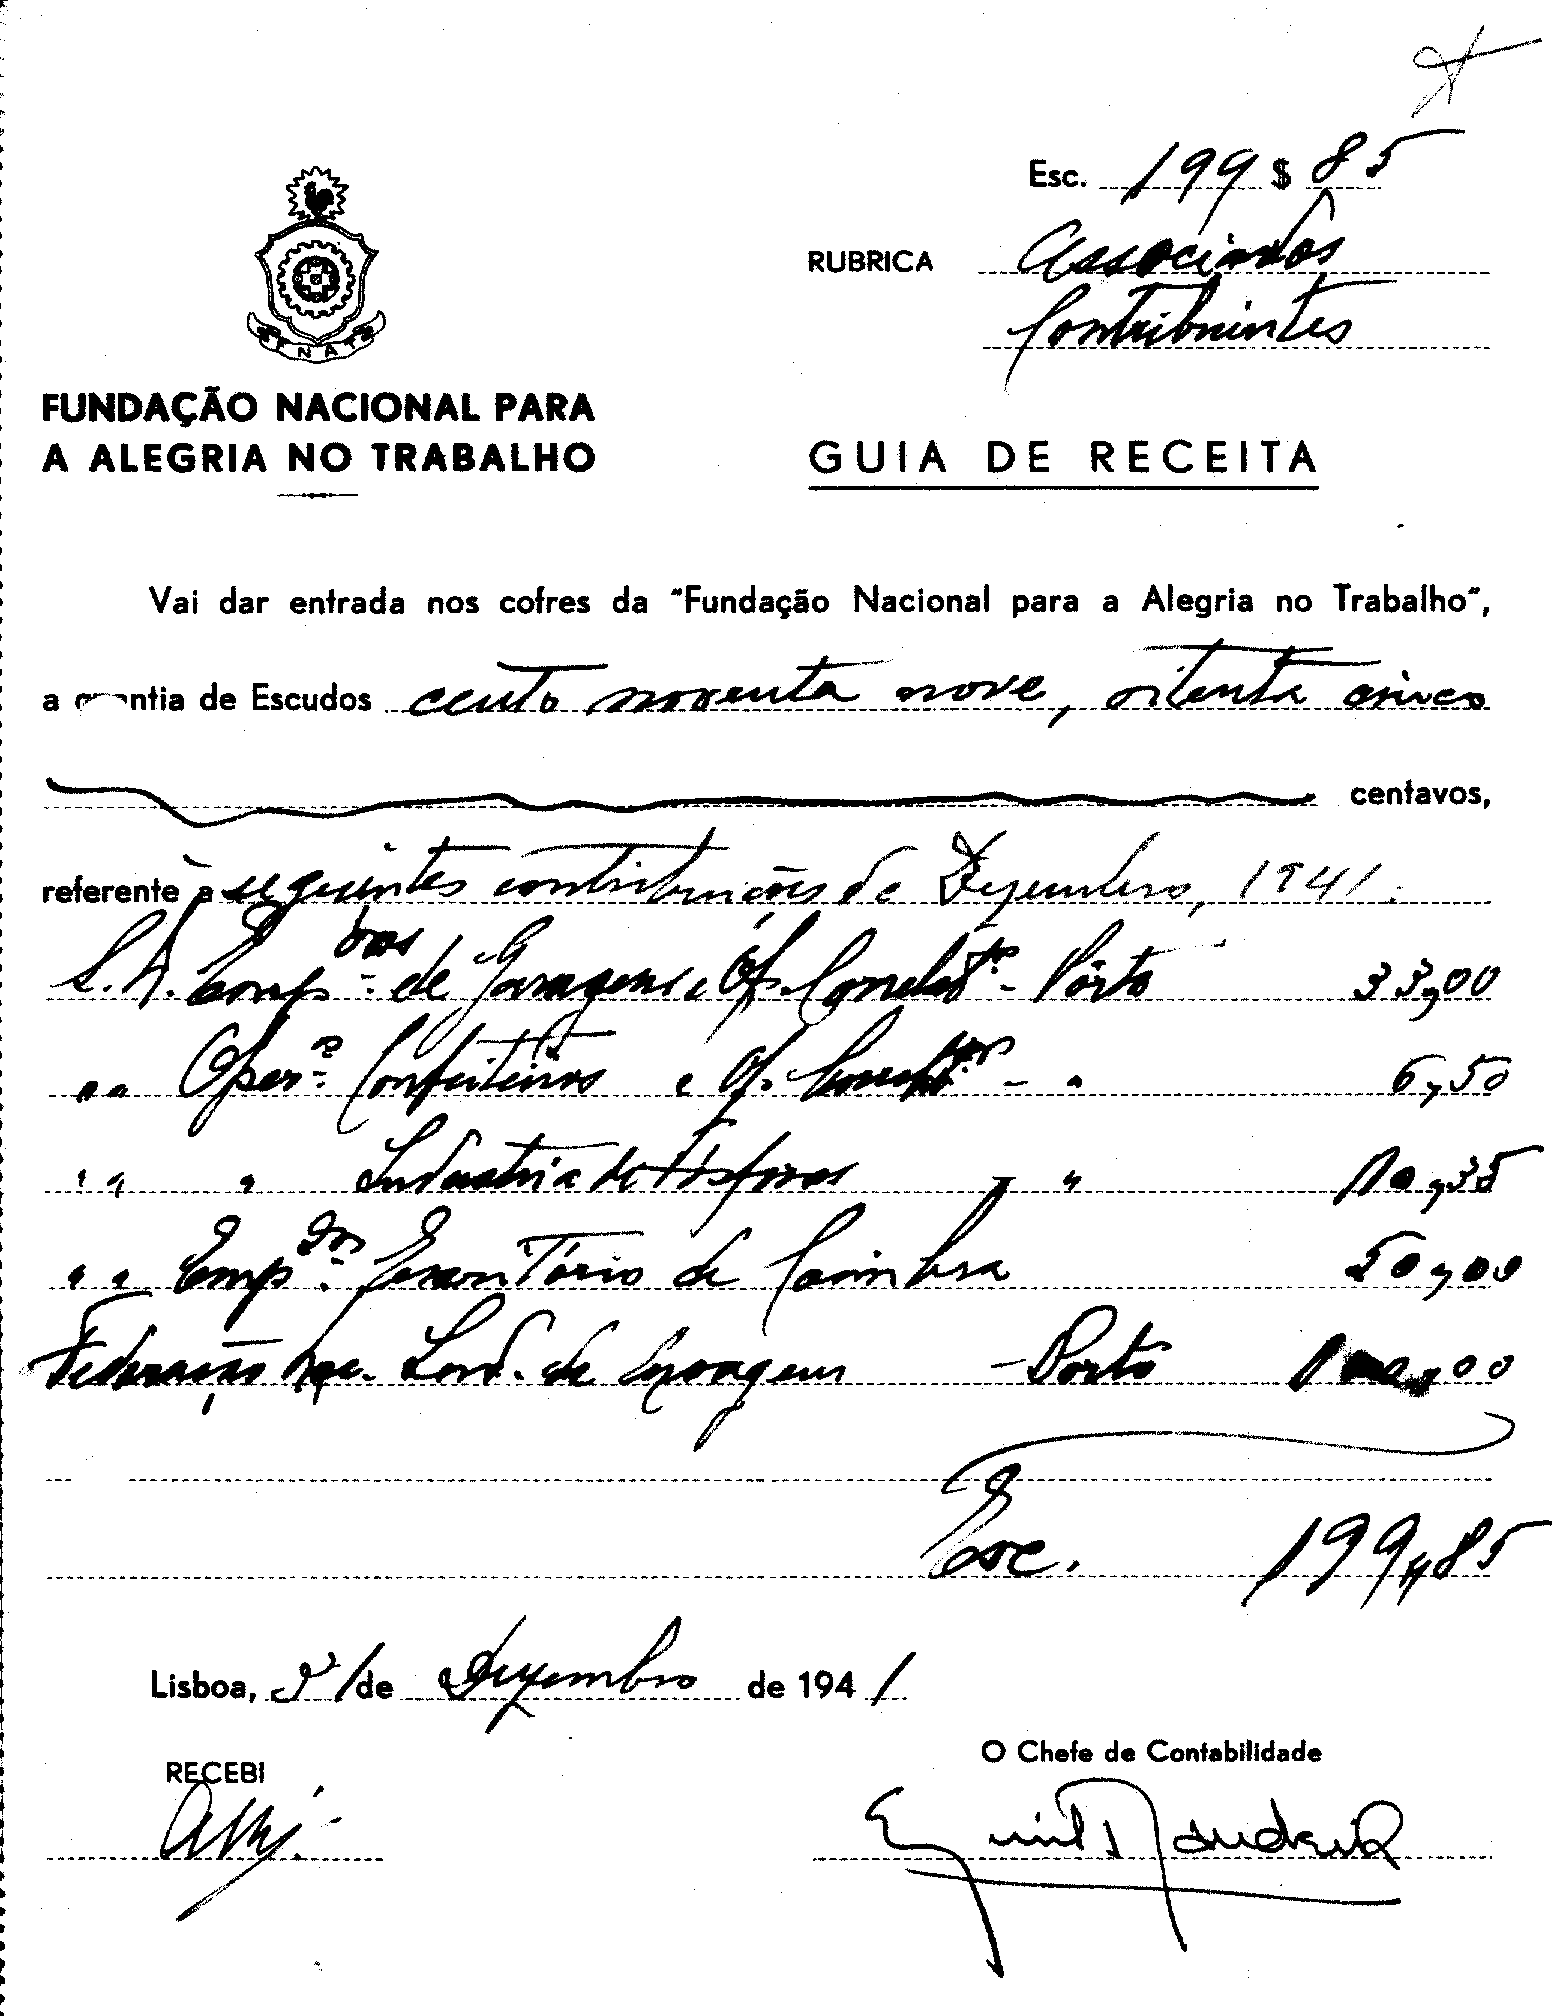 Esc. 199 $ 85
RUBRICA Associados
Contribuintes
FNAT
FUNDAÇÃO NACIONAL PARA
A ALEGRIA NO TRABALHO
GUIA DE RECEITA
Vai dar entrada nos cofres da "Fundação Nacional para a Alegria no Trabalho",
a quantia de Escudos cento noventa nove, oitenta cinco
centavos,
referente a seguintes contribuições de Dezembro, 1941.
S. N. Empdos. de Garagens e Of. - Pôrto 33,00
" " Oper. Confeiteiros e Of. - " 6,50
" " " Indústria de Fósforos - " 10,35
" " Emp. Escritório de Coimbra 50,00
Federação Nac. de - Porto 100,00
Esc. 199,85
Lisboa, 31 de Dezembro de 1941
RECEBI
O Chefe de Contabilidade